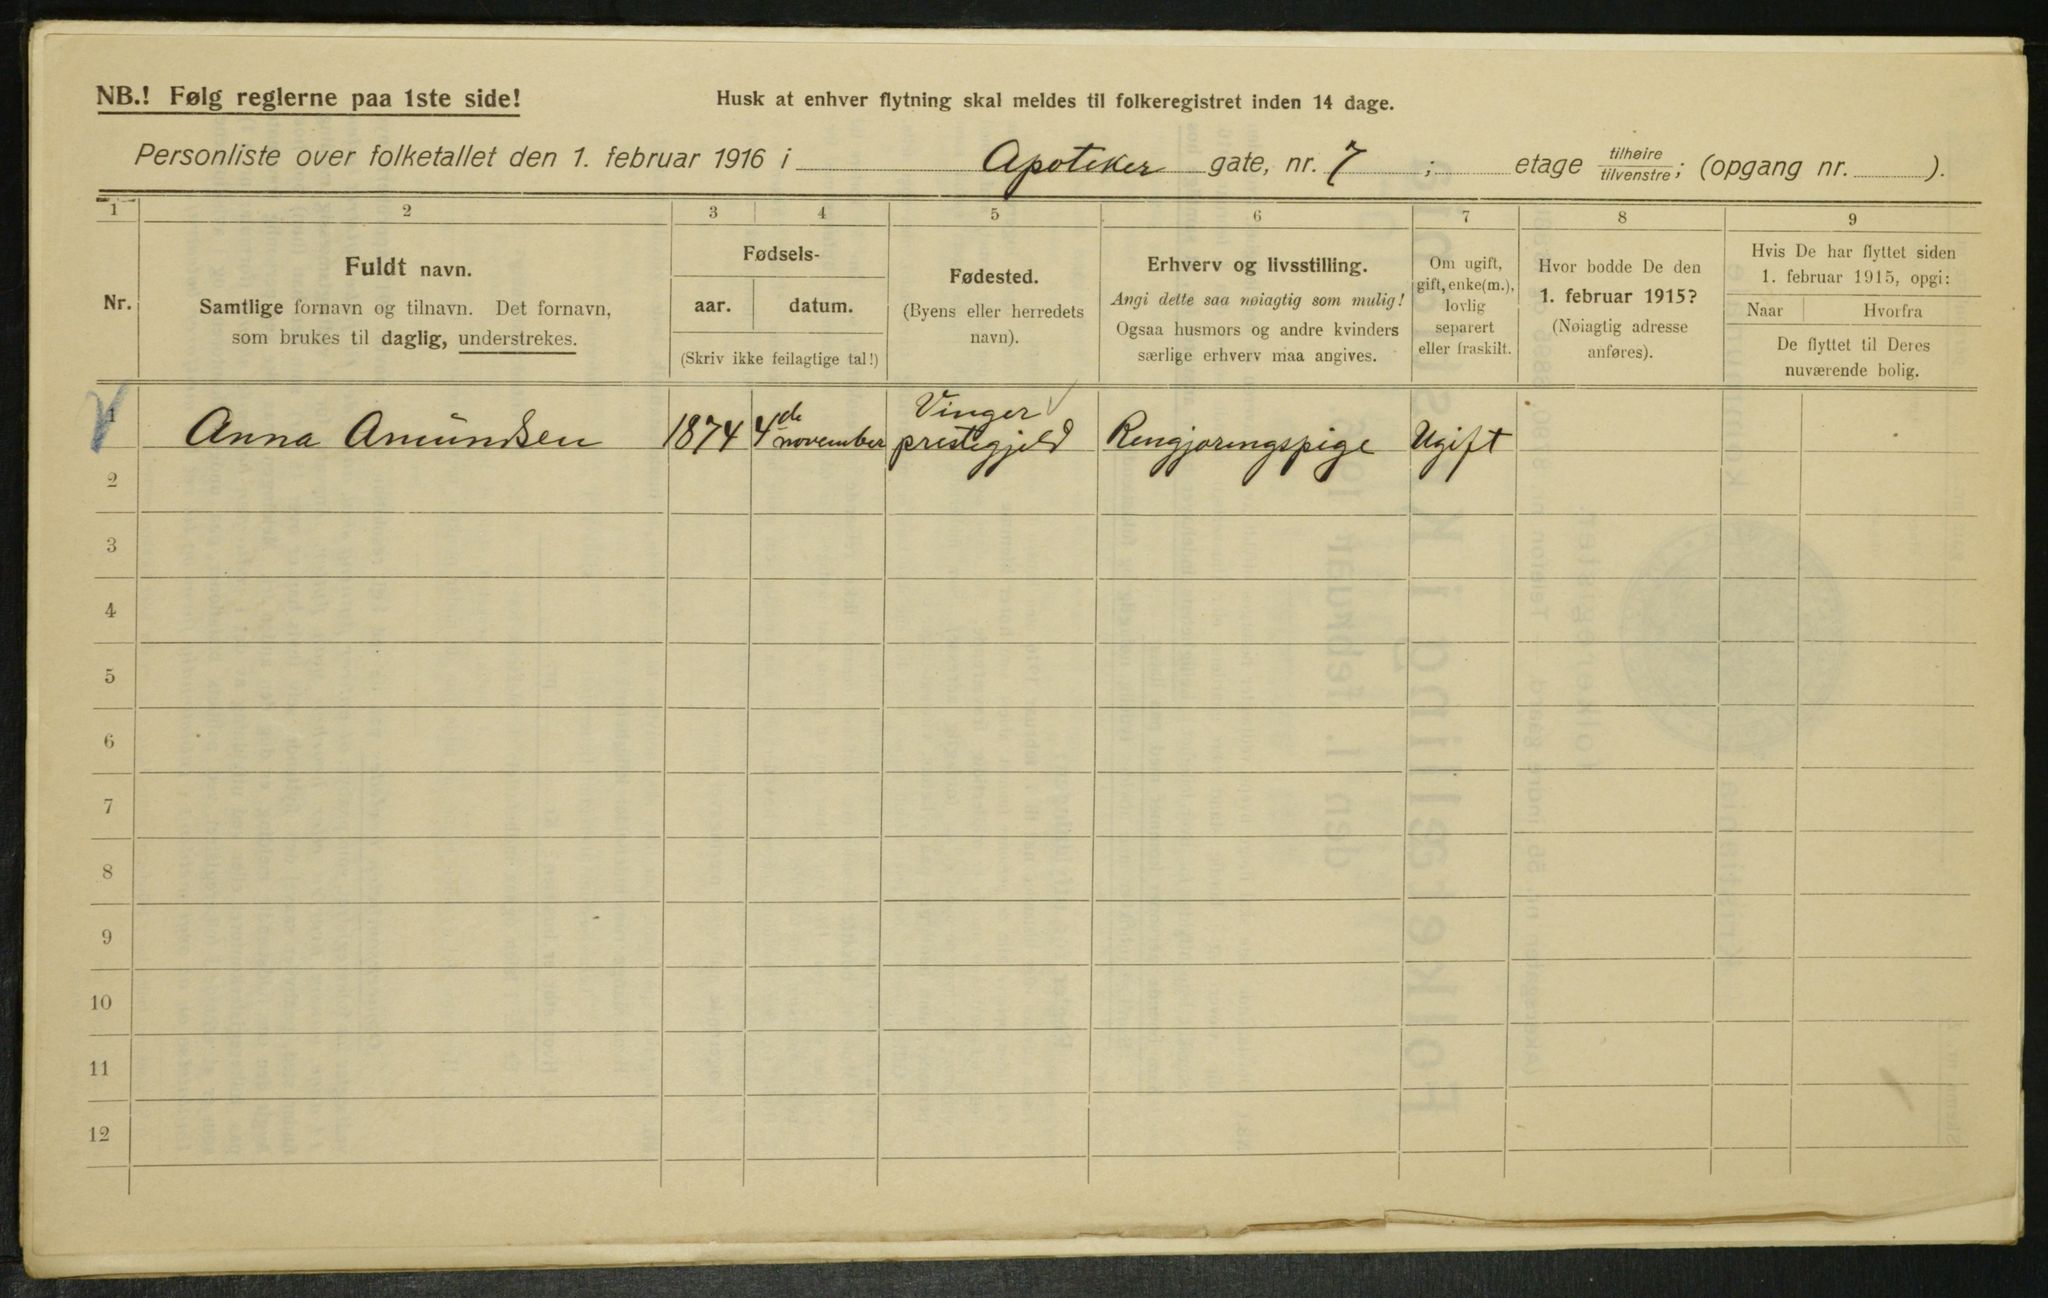 NB.! Følg reglerne paa 1ste side!
Husk at enhver flytning skal meldes til folkeregistret inden 14 dage.
Personliste over folketallet den 1. februar 1916 i Apoteker gate, nr. 7 ; etage tilhøire tilvenstre; (opgang nr. ).
1 2 3 4 5 6 7 8 9
Nr.
Fuldt navn.
Samtlige fornavn og tilnavn. Det fornavn,
som brukes til daglig, understrekes.
Fødsels-
aar. datum.
(Skriv ikke feilagtige tal!)
Fødested.
(Byens eller herredets
navn).
Erhverv og livsstilling.
Angi dette saa nøiagtig som mulig!
Ogsaa husmors og andre kvinders
særlige erhverv maa angives.
Om ugift,
gift, enke(m.),
lovlig
separert
eller fraskilt.
Hvor bodde De den
1. februar 1915?
(Nøiagtig adresse
anføres).
Hvis De har flyttet siden
1. februar 1915, opgi:
Naar Hvorfra
De flyttet til Deres
nuværende bolig.
1 Anna Amundsen 1874 4de november Vinger prestegjeld Rengjøringspige Ugift
2
3
4
5
6
7
8
9
10
11
12